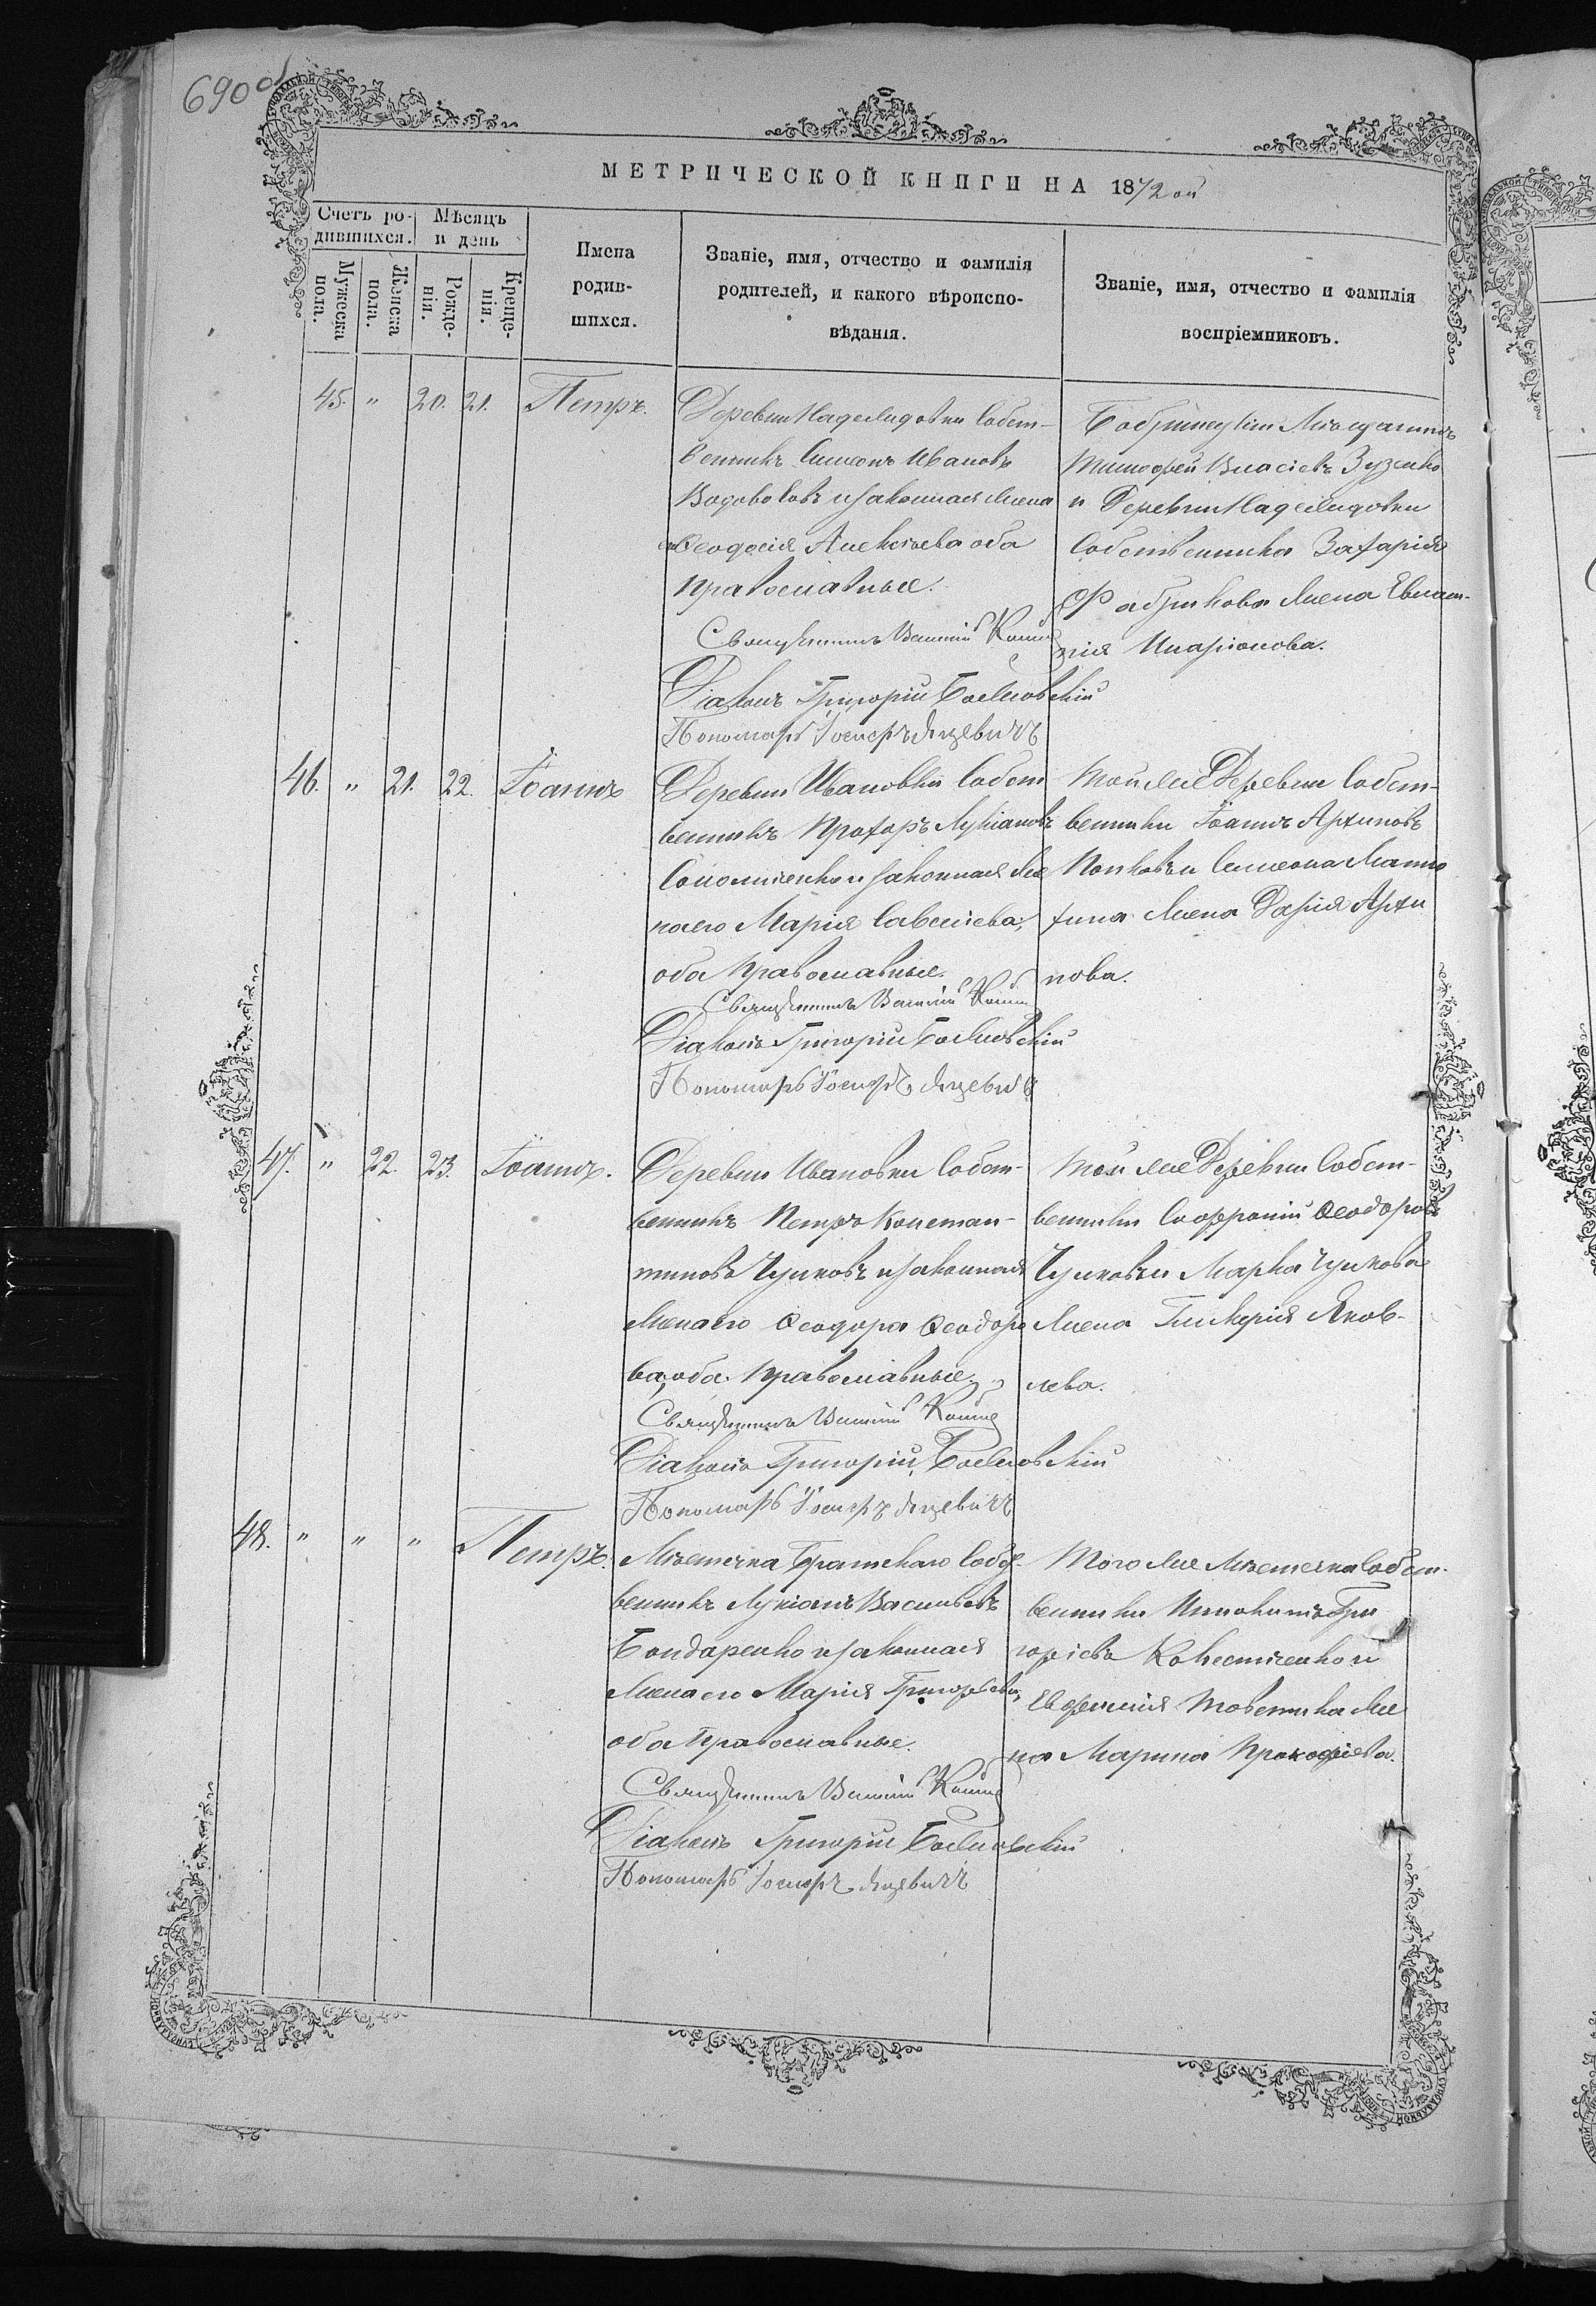 690 об
МЕТРИЧЕСКОЙ КНИГИ НА 1872 ой
Счетъ ро-
дившихся.
Мѣсяцъ
и день
Мужеска
пола.
Женска
пола.
Рожде-
нія.
Креще-
нія.
Имена
родив-
шихся.
Званіе, имя, отчество и фамилія
родителей, и какого вѣроиспо-
вѣданія.
Званіе, имя, отчество и фамилія
воспріемниковъ.
45. " 20. 21. Петръ.
Деревни Надеждовки Собст-
венникъ Симеонъ Ивановъ
Водовозовъ и законная жена
его Ѳеодосія Алексѣева оба
православные.
Священникъ Василій
Діаконъ Григорій
Пономарь Іосифъ Яцевичъ
Бобринецкій Мѣщанинъ
Тимофей Власіевъ Зузенко
и Деревни Надеждовки
Собственника Захарія
Фабрикова жена Евлам-
пія Иларіонова.
46. " 21. 22. Іоаннъ
Деревни Ивановки Собст
венникъ Прохоръ Лукіановъ
Соломченко и законная же
на его Марія Савеліева,
оба Православные.
Священникъ Василій
Діаконъ Григорій
Пономарь Іосифъ Яцевичъ
Той же Деревни Собст-
венники Іоаннъ Архиповъ
Попковъ и Симеона
жена Дарія Архи
пова.
47. " 22. 23. Іоаннъ.
Деревни Ивановки Собст-
венникъ Петръ Констан-
тиновъ Чулковъ и законная
жена его Ѳеодора Ѳеодоро
ва, оба Православные.
Священникъ Василій
Діаконъ Григорій
Пономарь Іосифъ Яцевичъ
Той же Деревни Собст-
венники Софроній Ѳеодоровъ
Чулковъ и Марка Чулкова
жена Гликерія Яков-
лева.
48. " " " Петръ.
Мѣстечка Братскаго Собст-
венникъ Лукіанъ Васильевъ
Бондаренко и законная
жена его Марія Григорьева,
оба Православные.
Священникъ Василій
Діаконъ Григорій
Пономарь Іосифъ Яцевичъ
Того же Мѣстечка Собст-
венники Иннокентъ Гри
горіевъ и
Евфимія Товстика же
на Марина Прокофіева.